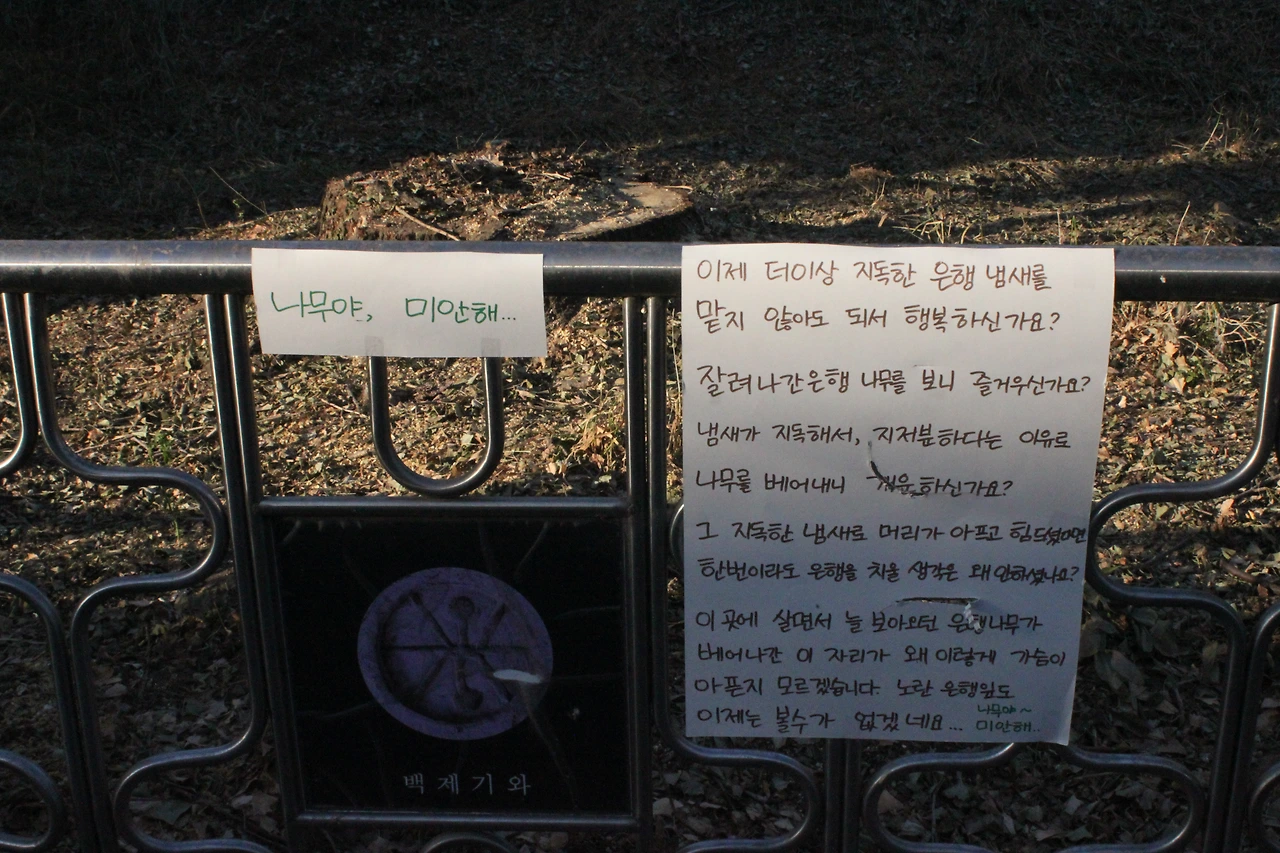 나무야, 미안해...
이제 더이상 지독한 은행 냄새를
맡지 않아도 되서 행복하신가요?
잘려나간은행 나무를 보니 즐거우신가요?
냄새가 지독해서, 지저분하다는 이유로
나무를 베어내니 개운하신가요?
그 지독한 냄새로 머리가 아프고 힘드셨다면
한번이라도 은행을 치울 생각은 왜 안하셨나요?
이 곳에 살면서 늘 보아오던 은행나무가
베어나간 이 자리가 왜 이렇게 가슴이
아픈지 모르겠습니다. 노란 은행잎도
이제는 볼수가 없겠네요...
나무야~
미안해..
백제기와